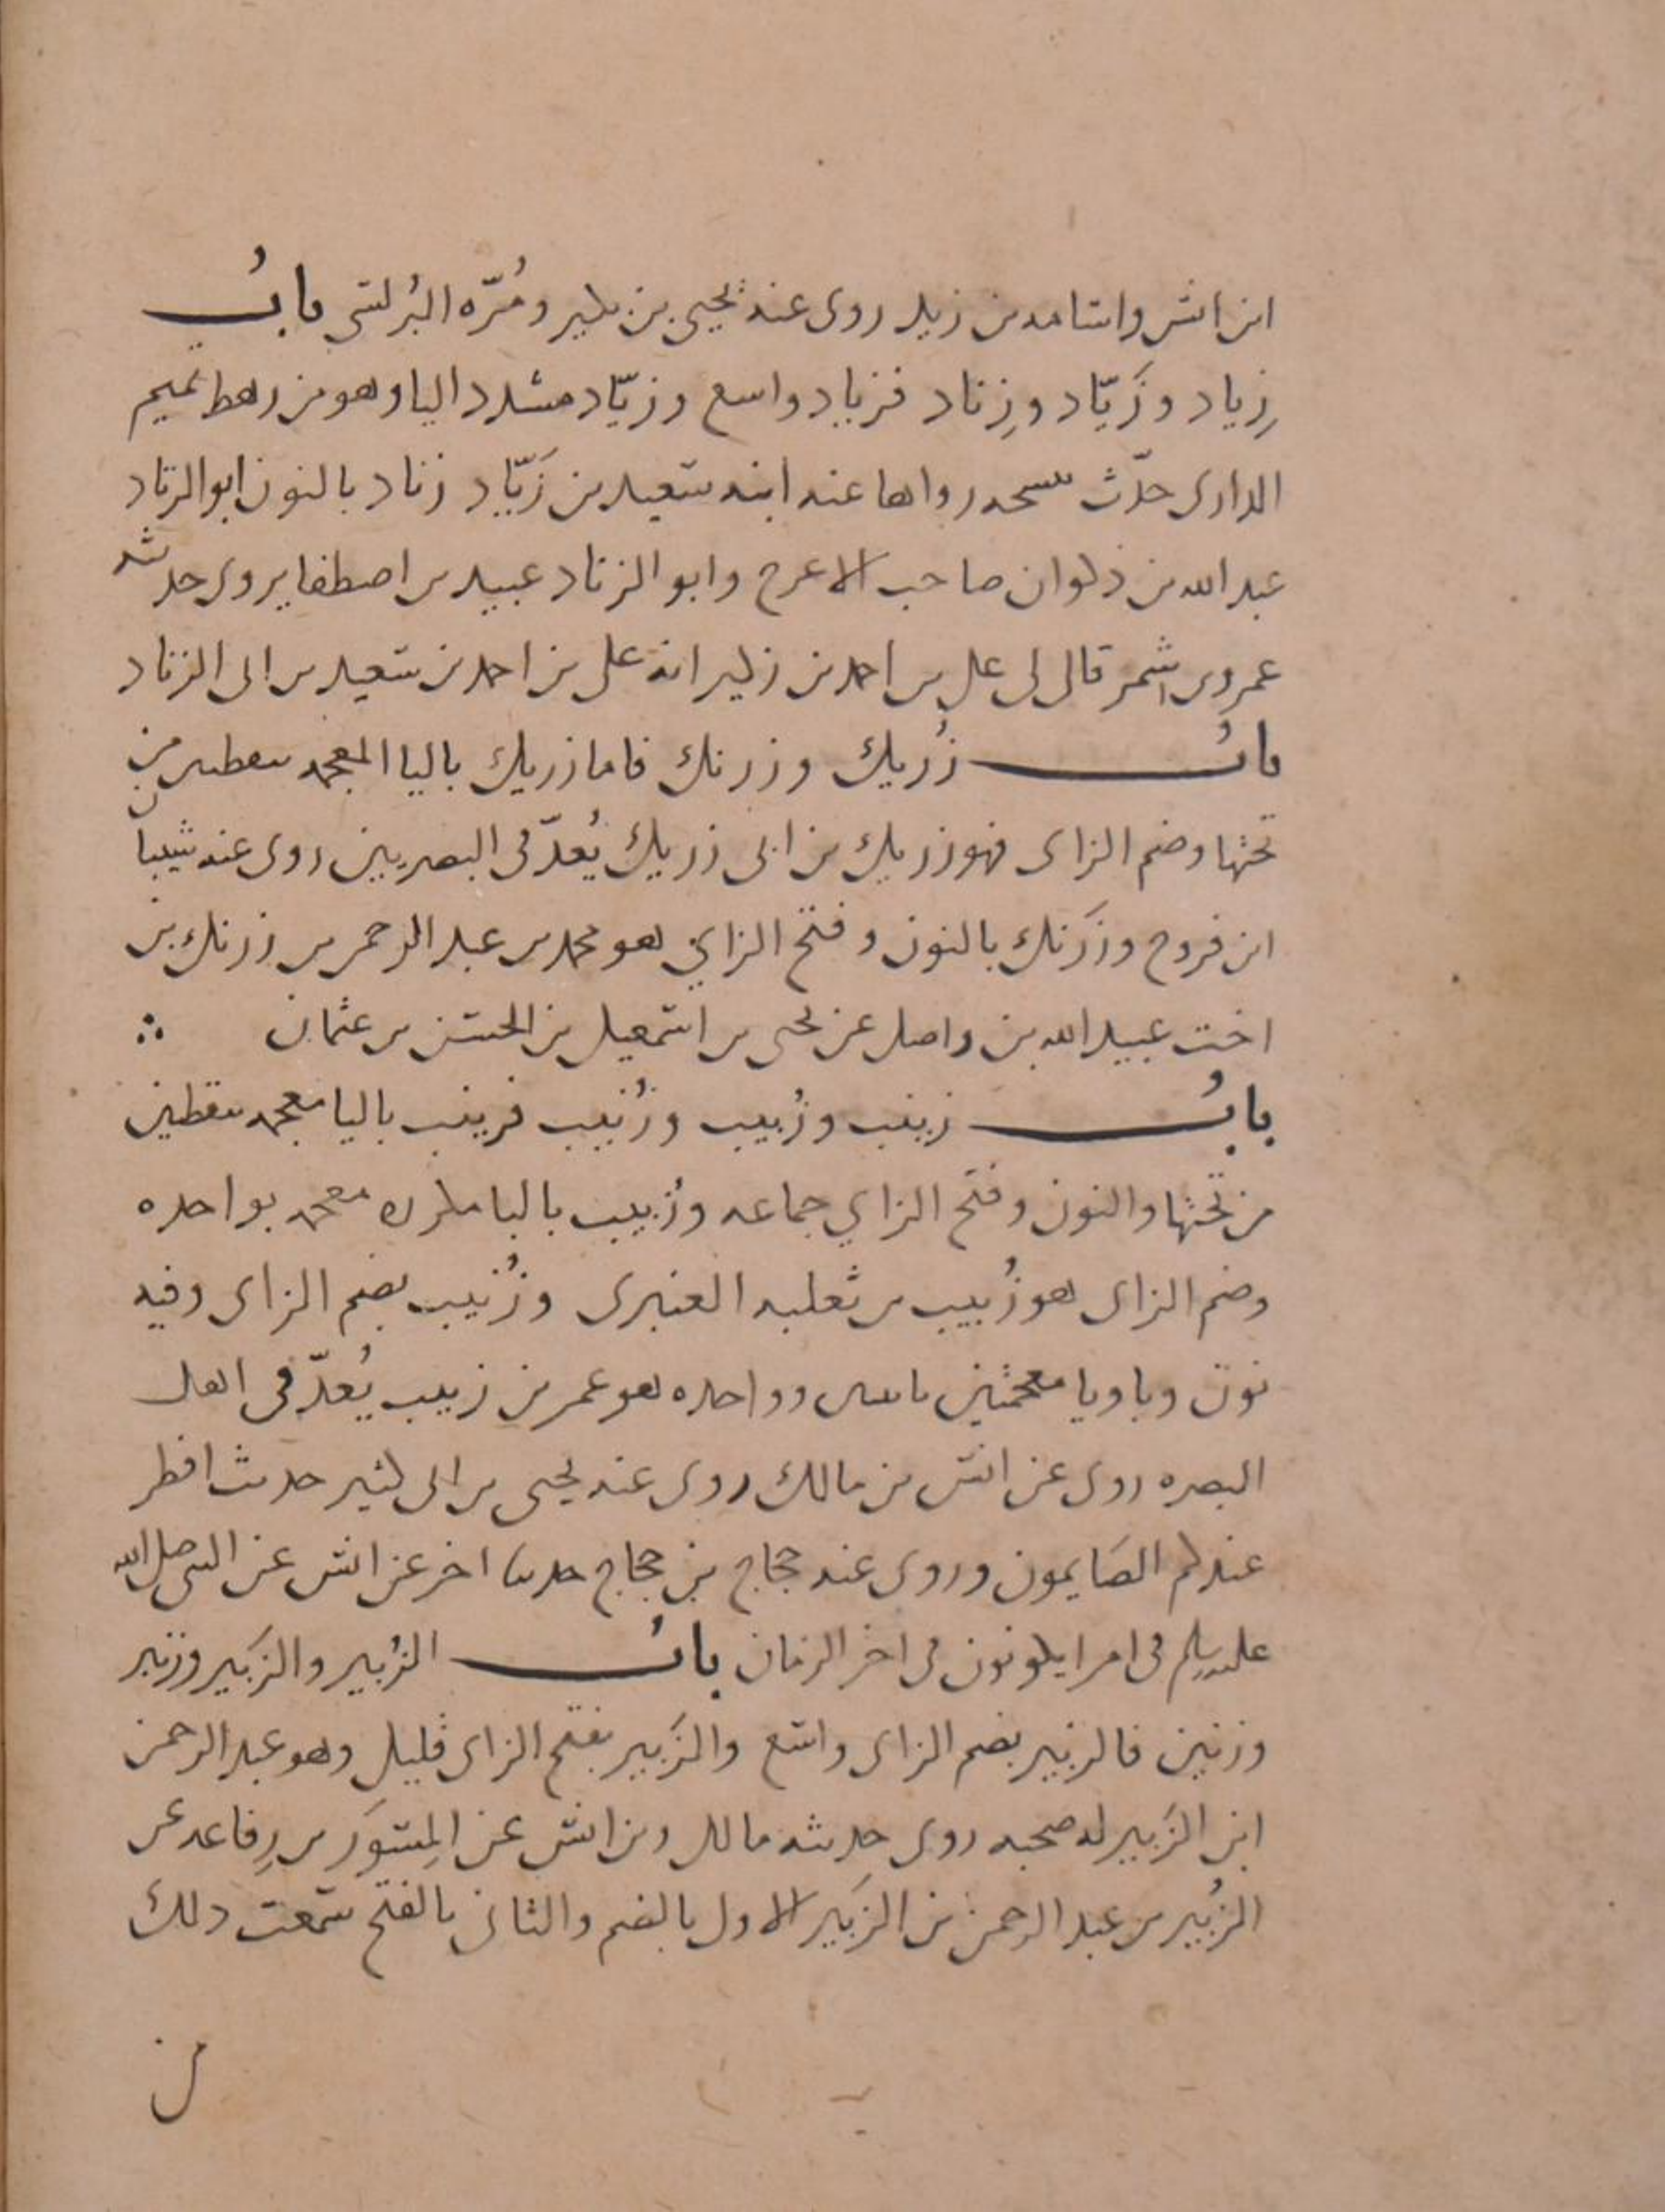 ابن انس واسامه بن زيد روى عنه يحيى بن بكير ومُرّه البُرلسى بابُ
زِياد وزَيّاد وزِناد فزياد واسع وزيّاد مشدد اليا وهو من رهط تميم
الدارى حدّث بنسخه رواها عنه ابنه سعيد بن زَيّاد زناد بالنون ابو الزناد
عبد الله بن ذكوان صاحب الاعرج وابو الزناد عبيد بن اصطفا يروى حديثه
عمرو بن شمر قال لى على بن احمد بن زكير انه على بن احمد بن سعيد بن ابى الزناد
بابُ زُريك وزرنك فاما زريك باليا المعجمه بنقطتين من
تحتها وضم الزاى فهو زريك بن ابى زريك يُعدّ فى البصريين روى عنه شيبان
ابن فروخ وزَرنك بالنون وفتح الزاي هو محمد بن عبد الرحمن بن زرنك بن
اخت عبيد الله بن واصل عن يحيى بن اسمعيل بن الحسن بن عثمان ∴
بابُ زينب وزُبيب وزُنيب فزينب باليا معجمه بنقطتين
من تحتها والنون وفتح الزاي جماعه وزُبيب بالبا مكرره معجمه بواحده
وضم الزاى هو زُبيب بن ثعلبه العنبرى وزُنيب بضم الزاى وفيه
نون وبا ويا معجمتين باثنتين وواحده هو عمر بن زنيب يُعدّ فى اهل
البصره روى عن انس بن مالك روى عنه يحيى بن ابى كثير حديث افطر
عندكم الصَايمون وروى عنه حجاج بن حجاج حديثا اخر عن انس عن النبى صلى الله
عليه وسلم فى امرا يكونون فى اخر الزمان بابُ الزُبير والزَبير وزنبر
وزنين فالزبير بضم الزاى واسع والزَبير بفتح الزاى قليل وهو عبد الرحمن
ابن الزَبير له صحبه روى حديثه مالك بن انس عن المِسوَر بن رِفاعه عن
الزُبير بن عبد الرحمن بن الزَبير الاول بالضم والثانى بالفتح سمعت ذلك